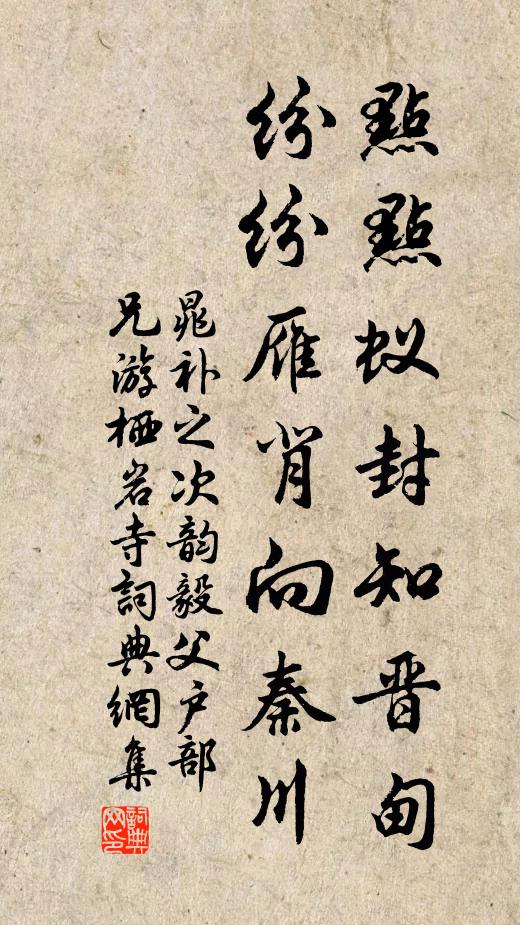 點點蚁封知晋甸
纷纷雁背向秦川
晁补之次韵毅父户部
兄游栖岩寺詞典網集
詞典
网印